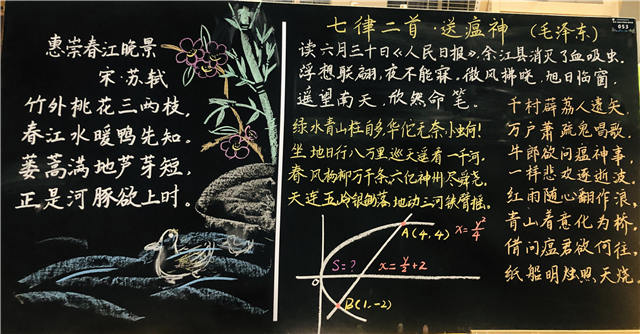 惠崇春江晚景
宋·苏轼
竹外桃花三两枝,
春江水暖鸭先知。
蒌蒿满地芦芽短,
正是河豚欲上时。
七律二首·送瘟神 (毛泽东)
读六月三十日《人民日报》,余江县消灭了血吸虫。
浮想联翩,夜不能寐。微风拂晓,旭日临窗。
遥望南天,欣然命笔。
绿水青山枉自多,华佗无奈小虫何!
坐地日行八万里,巡天遥看一千河。
春风杨柳万千条,六亿神州尽舜尧。
天连五岭银锄落,地动三河铁臂摇。
千村薜荔人遗矢,
万户萧疏鬼唱歌。
牛郎欲问瘟神事,
一样悲欢逐逝波。
红雨随心翻作浪,
青山着意化为桥。
借问瘟君欲何往,
纸船明烛照天烧
A(4,4) x=y²/4
S=? x=y/2+2
B(1,-2)
053